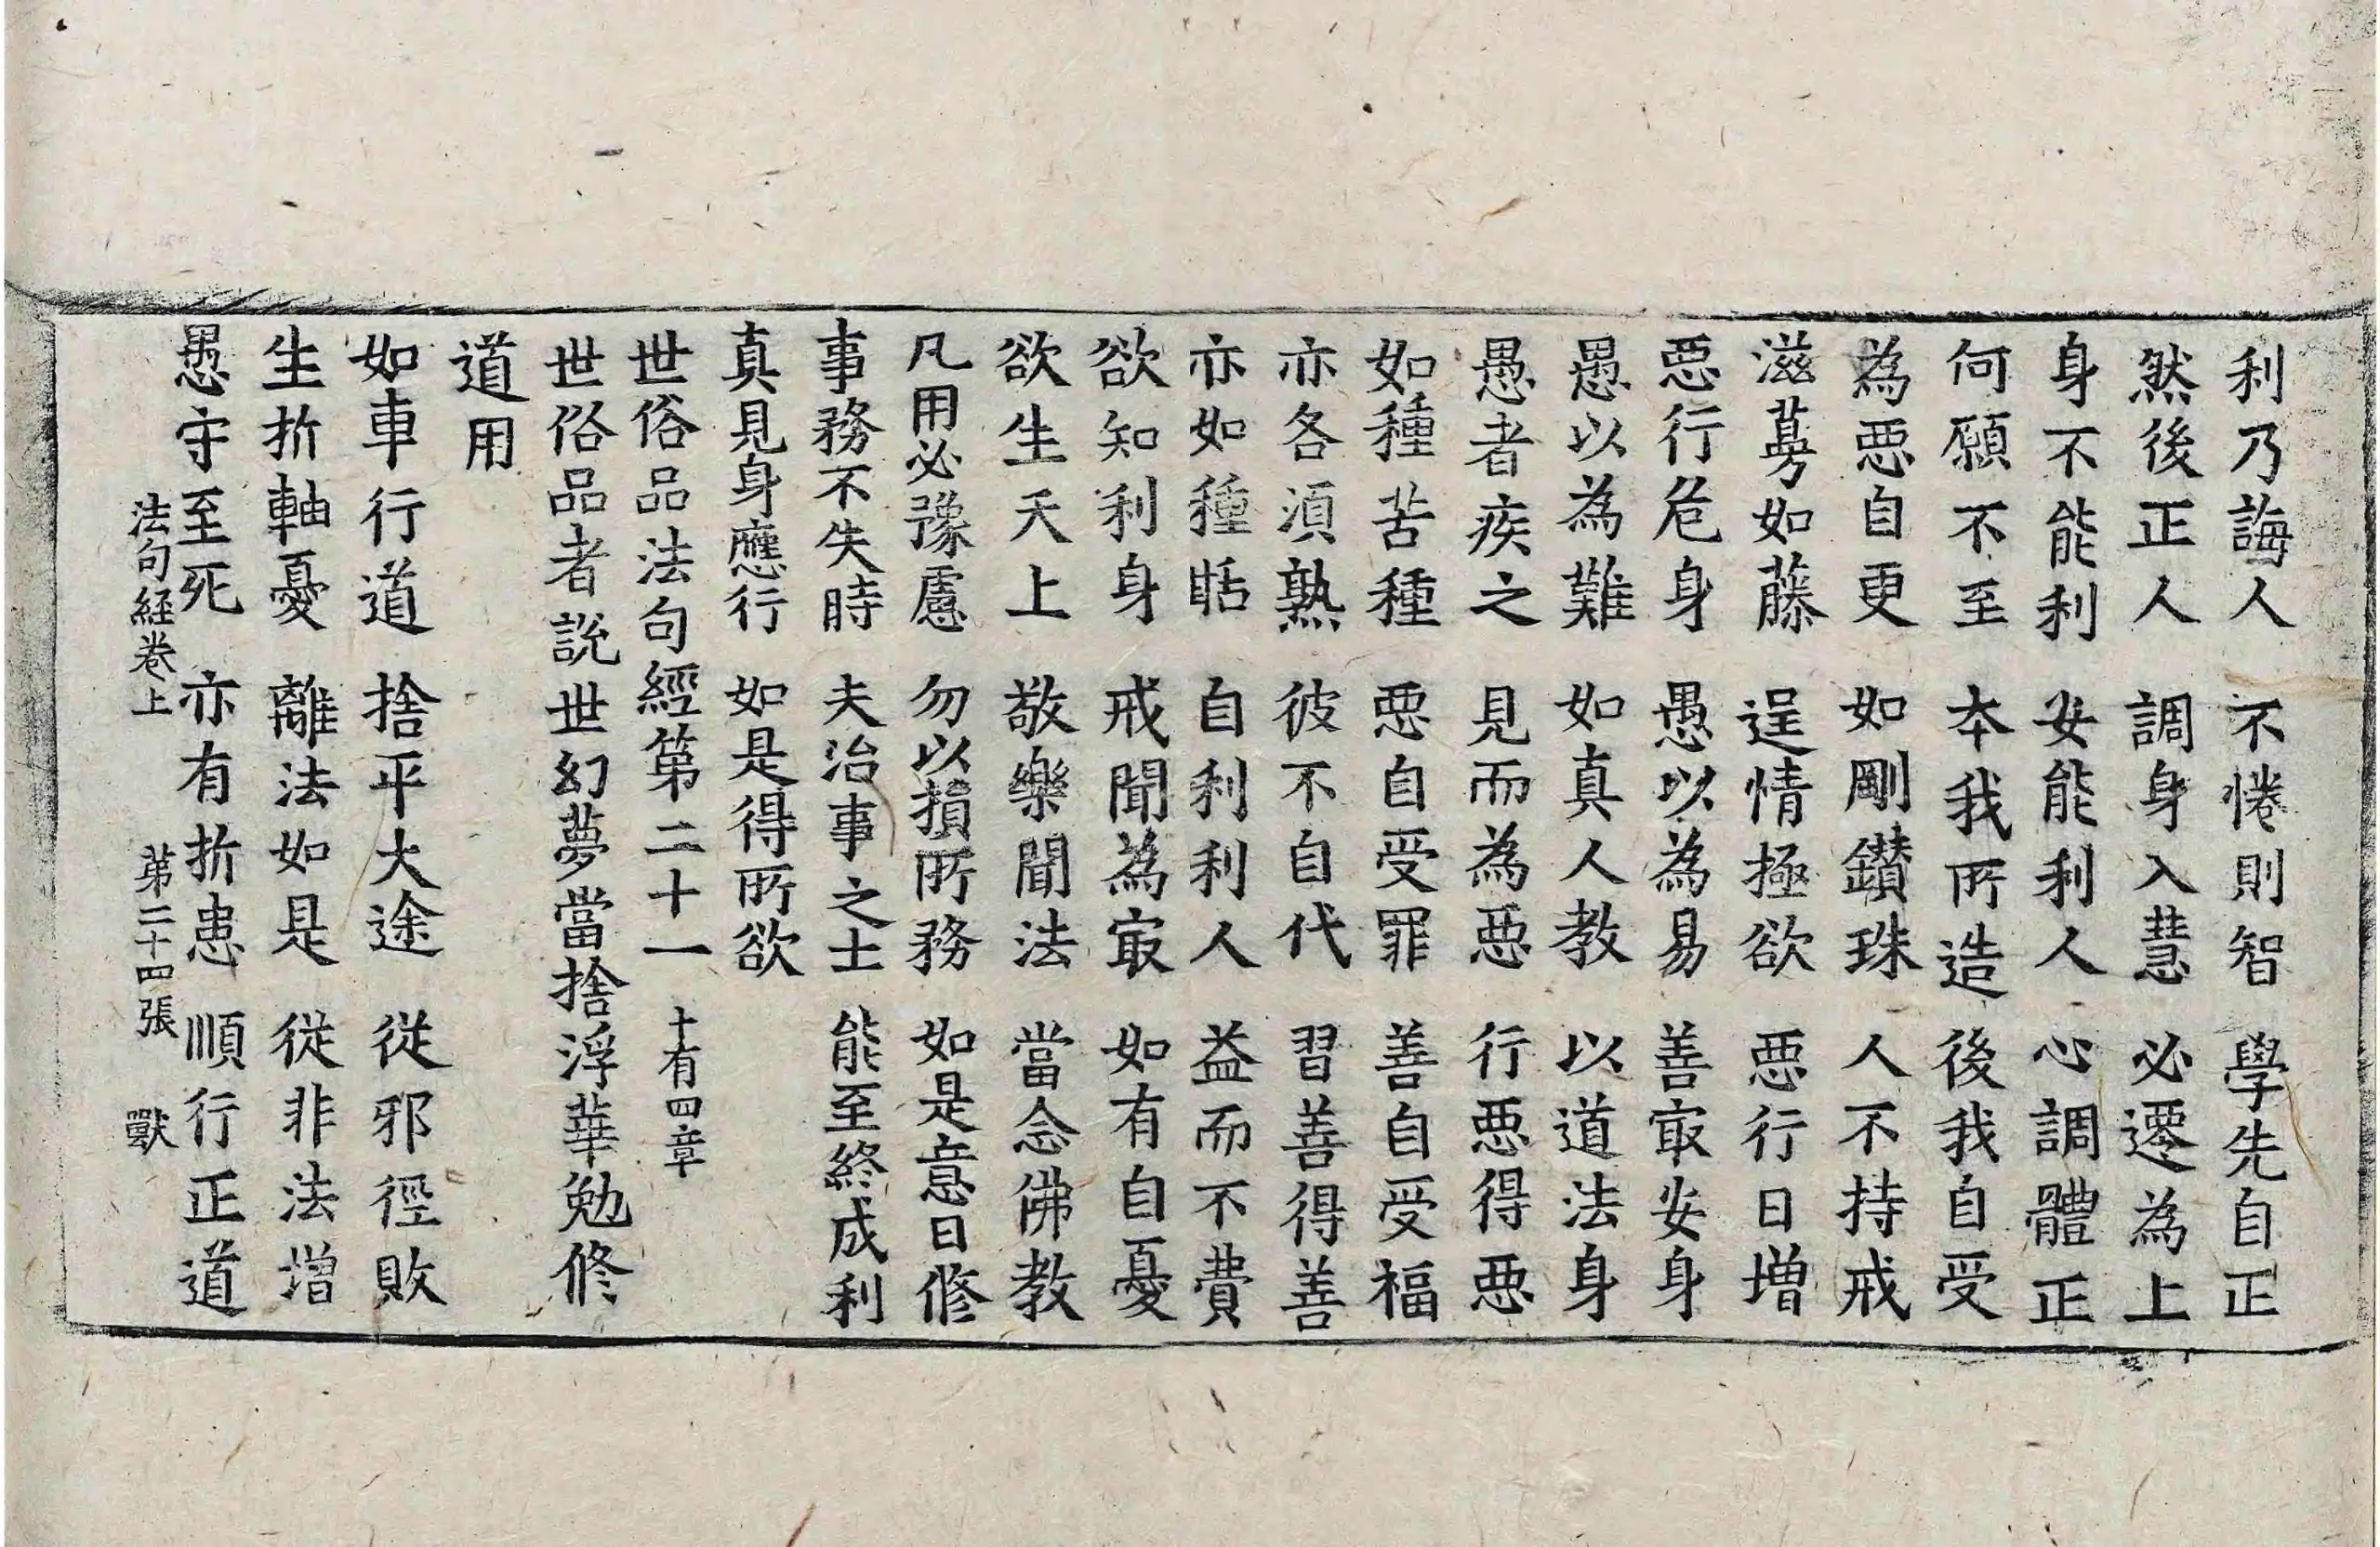 利乃誨人 不惓則智 學先自正
然後正人 調身入慧 必遷為上
身不能利 安能利人 心調體正
何願不至 本我所造 後我自受
為惡自更 如剛鑚珠 人不持戒
滋蔓如藤 逞情極欲 惡行日增
惡行危身 愚以為易 善㝡安身
愚以為難 如真人教 以道法身
愚者疾之 見而為惡 行惡得惡
如種苦種 惡自受罪 善自受福
亦各湏熟 彼不自代 習善得善
亦如種甛 自利利人 益而不費
欲知利身 戒聞為㝡 如有自憂
欲生天上 敬樂聞法 當念佛教
凡用必豫慮 勿以損所務 如是意日修
事務不失時 夫治事之士 能至終成利
真見身應行 如是得所欲
世俗品法句經第二十一 十有四章
世俗品者說世幻夢當捨浮華勉修
道用
如車行道 捨平大途 從邪徑敗
生折軸憂 離法如是 從非法增
愚守至死 亦有折患 順行正道
法句経卷上 苐二十四張 獸